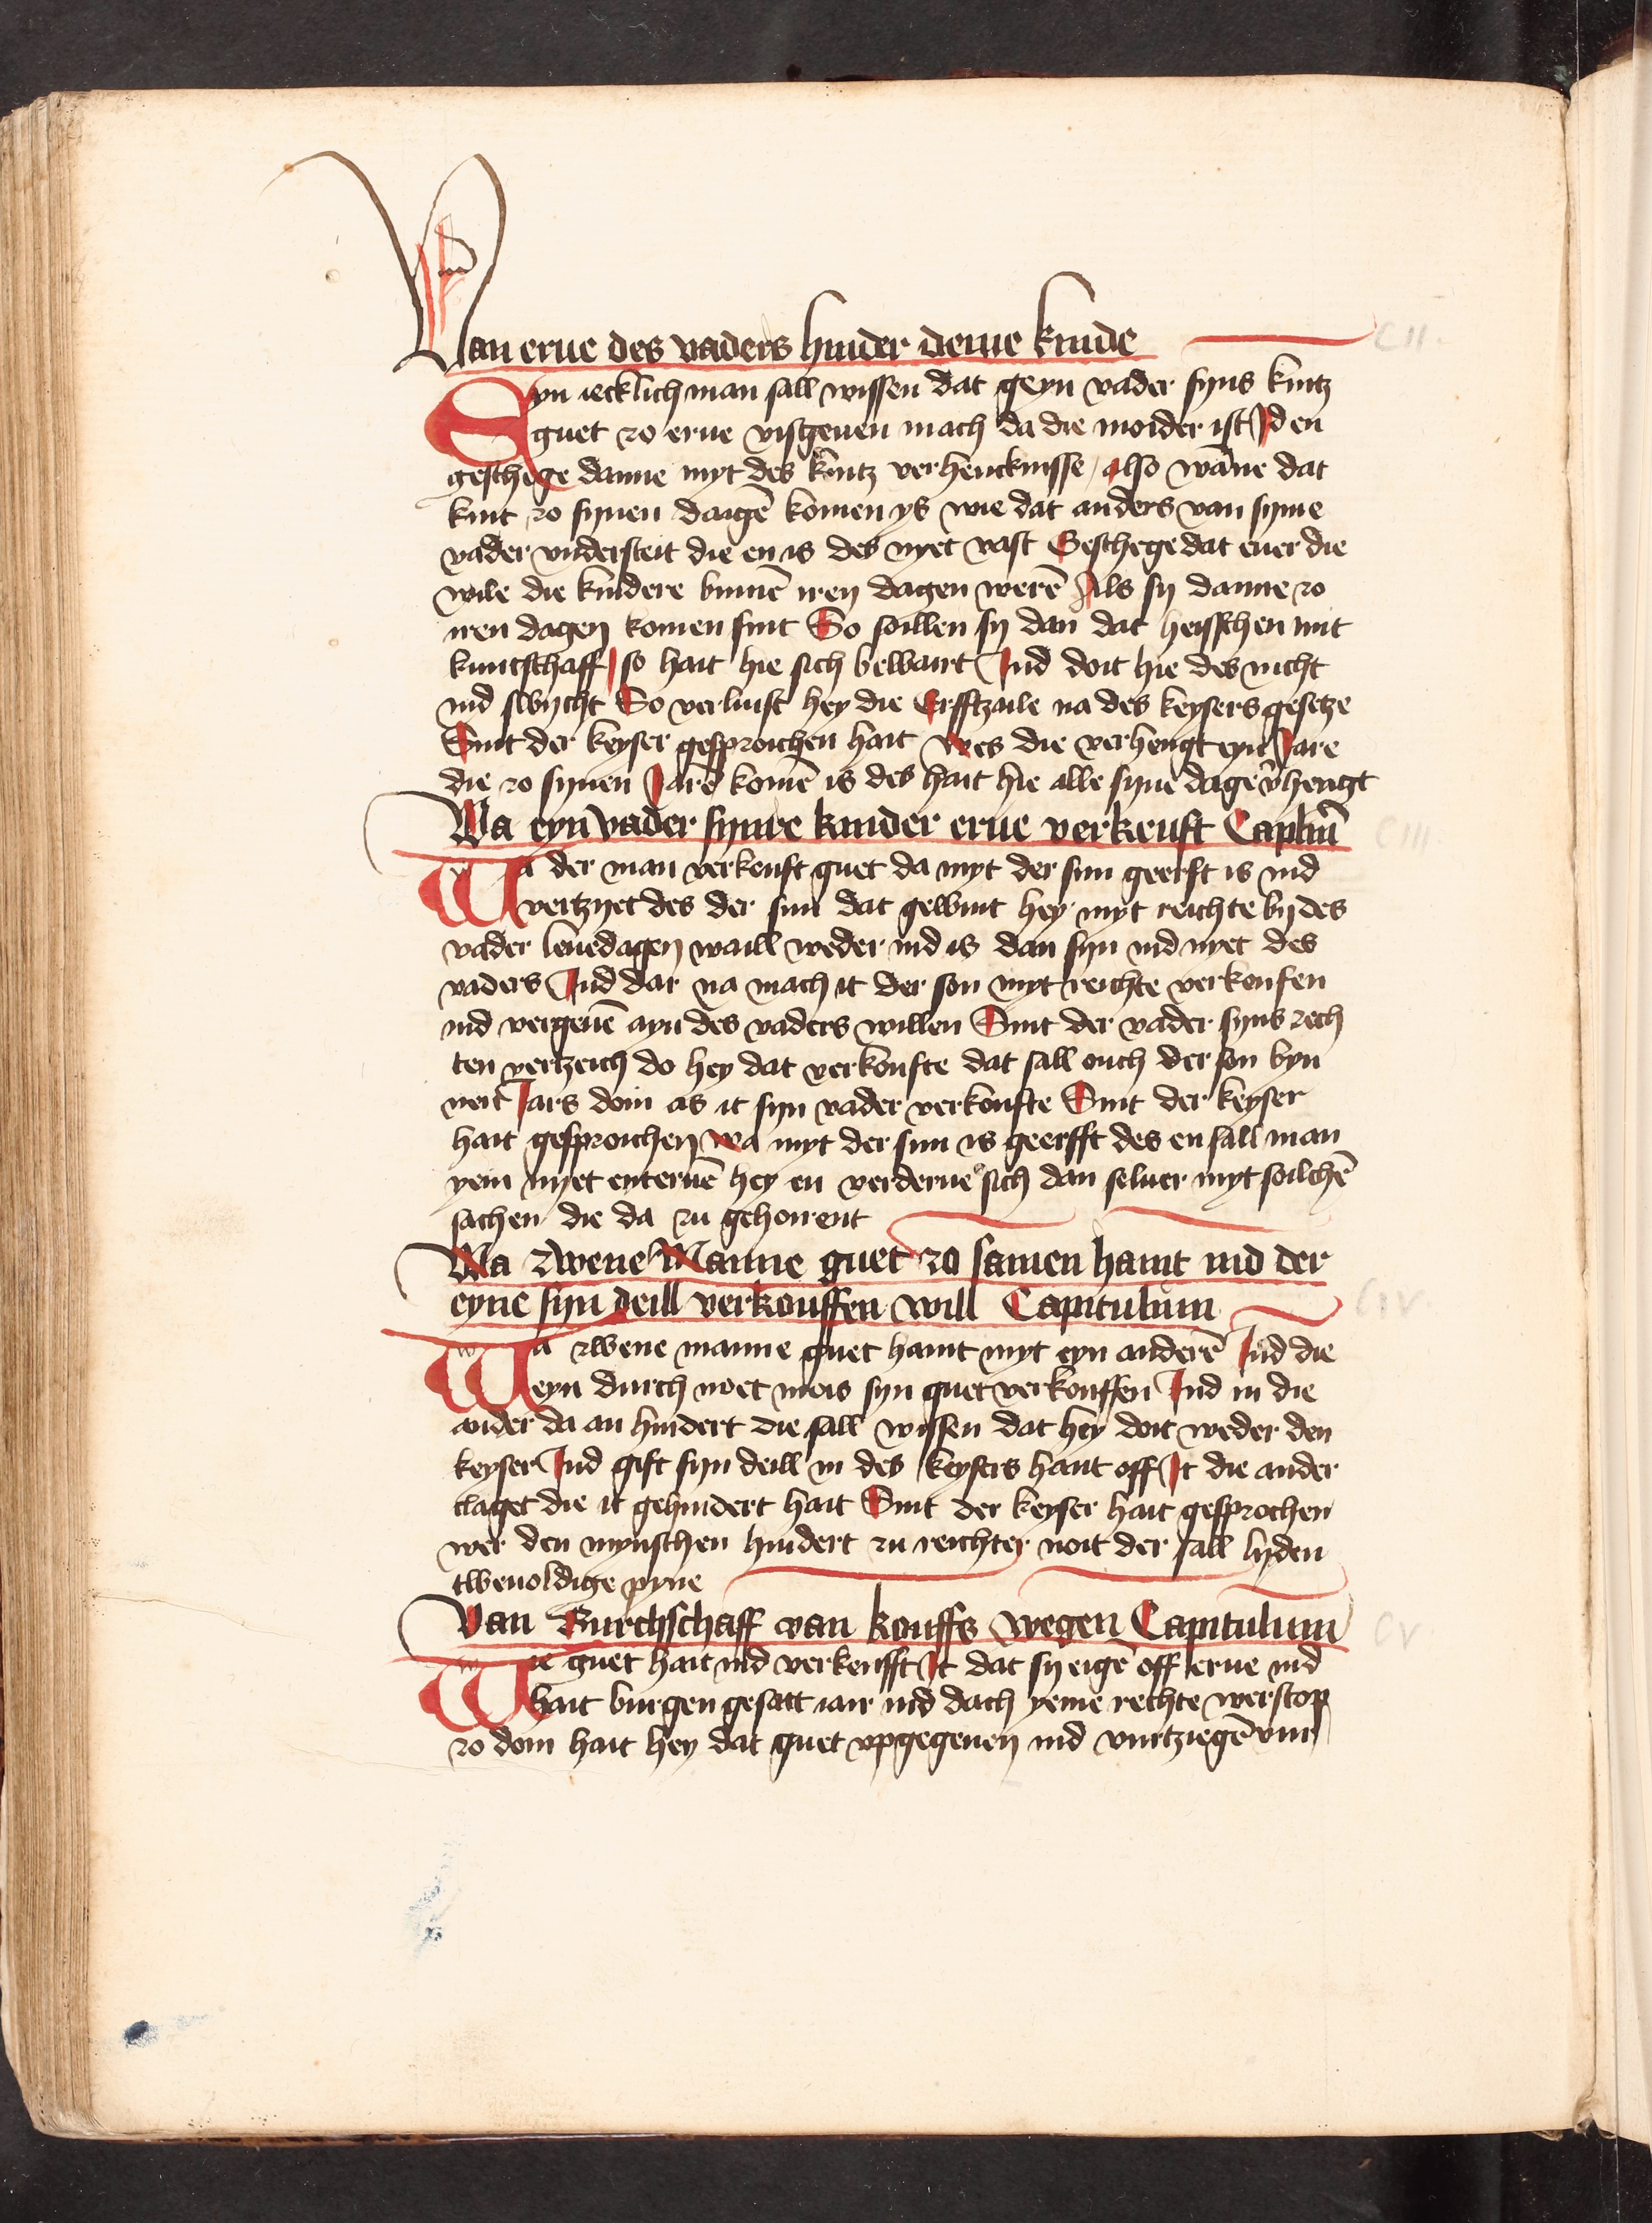 Van erue des vaders hinder deme kinde
CII.
Eyn iecklich man sall wissen dat geyn vader syns kintz
guet zo erue visgeuen mach da die moider ist Id en
geschege danne myt des kintz verhencknisse / also wāne dat
kint zo synen daigē komen ys wie dat anders van syme
vader vndersteit die en is des nyet vast Geschege dat euer die
wile die kindere binnē iren dagen werē Als sy danne zo
iren dagen komen sint So soillen sy dan dat heisschen mit
kuntschaff / so hait hie sich bewairt Ind doit hie des nicht
ind swycht So verluist hey die Erfftzaile na des keysers gesetze
Sint der keyser gesproichen hait wes die verhengt eyn Jare
die zo synen Jarē komē is des hait hie alle syne dage v̄hengt
Wa eyn vader synre kinder erue verkeuft Capl̄m
CIII.
Wa der man verkouft guet da myt der sun geerft is ind
vertzyet des der sun dat gewint hey myt reichte by des
vader leuēdagen waill weder ind is dan syn ind nyet des
vaders Ind dar na mach it der son myt reichte verkoufen
ind vergeuē ayn des vaders willen Sint der vader syns rech
ten vertzeich do hey dat verkoufte dat sall ouch der son byn
neīt Jars doin as it syn vader verkoufte Sint der keyser
hait gesproichen wa myt der sun is geerfft des en sall man
yem nyet enteruē hey en verderue sich dan seluer myt soilchē
sachen die da zu gehoirent
Wa zwene Manne guet zo samen haint ind der
eyne syn deill verkouffen will Capitulum
CIV.
Wa zwene manne guet haint myt eyn anderē Ind die
eyn durch noet mois syn guet verkouffen Ind in die
ander da an hindert die sall wissen dat hey doit weder den
keyser Ind gift syn deill in des keysers hant off It die ander
claget die it gehindert hait Sint der keyser hait gesprochen
wer den mynschen hindert zu reichter noit der sall lyden
tweuoldige pyne
Van Burchschaff van kouffs wegen Capitulum
CV.
Wie guet hait ind verkeufft It dat sy eigē off erue ind
hait burgen gesatt iair ind dach yeme rechte werstop
zo doin hait hey dat guet vpgegeuen ind vurtziegē vur